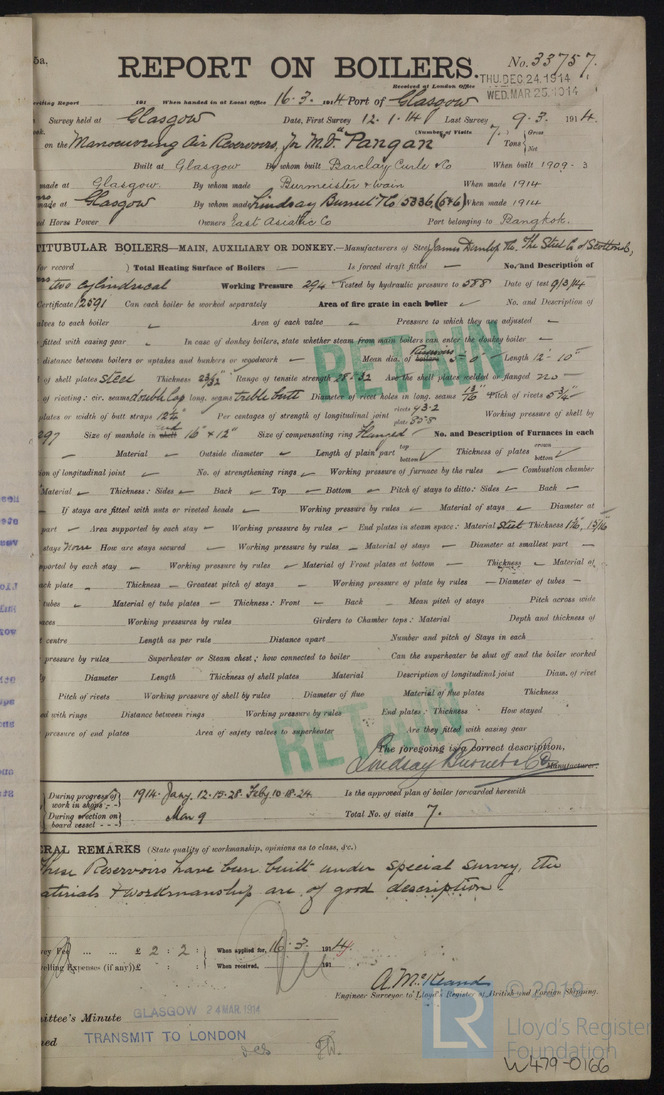 5a.
REPORT ON BOILERS.
No. 33757.
Received at London Office
THU. DEC. 24. 1914
WED. MAR. 25. 1914
Writing Report 191 When handed in at Local Office 16.3. 1914 Port of Glasgow
Survey held at Glasgow Date, First Survey 12.1.14 Last Survey 9.3. 1914.
(Number of Visits 7.) Gross Tons Net
on the Manoeuvring Air Reservoirs, for M.V. "Pangan
Built at Glasgow By whom built Barclay Curle & Co When built 1909-3
made at Glasgow. By whom made Burmeister & Wain When made 1914
made at Glasgow By whom made Lindsay Burnet & Co 5336 (5&6) When made 1914
ed Horse Power Owners East Asiatic Co Port belonging to Bangkok.
TITUBULAR BOILERS—MAIN, AUXILIARY OR DONKEY.—Manufacturers of Steel James Dunlop & Co. The Steel Co of Scotland,
for record ) Total Heating Surface of Boilers — Is forced draft fitted — No. and Description of
two cylindrical Working Pressure 294 Tested by hydraulic pressure to 588 Date of test 9/3/14
Certificate 12591 Can each boiler be worked separately Area of fire grate in each boiler ✓ No. and Description of
alves to each boiler Area of each valve Pressure to which they are adjusted
fitted with easing gear In case of donkey boilers, state whether steam from main boilers can enter the donkey boiler
RETAIN
distance between boilers or uptakes and bunkers or woodwork — Mean dia. of boilers 5'-0" Length 12'-10"
of shell plates Steel Thickness 23/32" Range of tensile strength 28-32 Are the shell plates welded or flanged no
of riveting: cir. seams double lap long. seams treble butt Diameter of rivet holes in long. seams 13/16 Pitch of rivets 5 3/4"
plates or width of butt straps 12 1/4" Per centages of strength of longitudinal joint rivets 93.2 plate 85.8 Working pressure of shell by
297 Size of manhole in shell end 16" x 12" Size of compensating ring Flanged No. and Description of Furnaces in each
Material Outside diameter Length of plain part top bottom Thickness of plates crown bottom
ion of longitudinal joint No. of strengthening rings Working pressure of furnace by the rules Combustion chamber
Material Thickness: Sides Back Top Bottom Pitch of stays to ditto: Sides Back
If stays are fitted with nuts or riveted heads Working pressure by rules Material of stays Diameter at
part Area supported by each stay Working pressure by rules End plates in steam space: Material Steel Thickness 1 1/16", 13/16"
stays None How are stays secured Working pressure by rules Material of stays Diameter at smallest part
pported by each stay Working pressure by rules Material of Front plates at bottom Thickness Material of
ack plate Thickness Greatest pitch of stays Working pressure of plate by rules Diameter of tubes
tubes Material of tube plates Thickness: Front Back Mean pitch of stays Pitch across wide
aces Working pressures by rules Girders to Chamber tops: Material Depth and thickness of
t centre Length as per rule Distance apart Number and pitch of Stays in each
pressure by rules Superheater or Steam chest; how connected to boiler Can the superheater be shut off and the boiler worked
ly Diameter Length Thickness of shell plates Material Description of longitudinal joint Diam. of rivet
Pitch of rivets Working pressure of shell by rules Diameter of flue Material of flue plates Thickness
ed with rings Distance between rings Working pressure by rules End plates: Thickness How stayed
RETAIN
pressure of end plates Area of safety valves to superheater Are they fitted with easing gear
The foregoing is a correct description,
Lindsay Burnet & Co Manufacturer.
During progress of work in shops - - 1914. Jany. 12-13-28. Feby 10-18-24. Is the approved plan of boiler forwarded herewith
During erection on board vessel - - - Mar 9 Total No. of visits 7.
ERAL REMARKS (State quality of workmanship, opinions as to class, &c.)
These Reservoirs have been built under special survey, the
aterials & workmanship are of good description.
vey Fee ... ... £ 2 : 2 : When applied for, 16.3. 1914
velling Expenses (if any) £ : : When received, 191
A. McKeand
Engineer Surveyor to Lloyd's Register of British and Foreign Shipping.
mittee's Minute GLASGOW 24 MAR. 1914
ned TRANSMIT TO LONDON
© 2019
LR
Lloyd's Register
Foundation
W479-0166